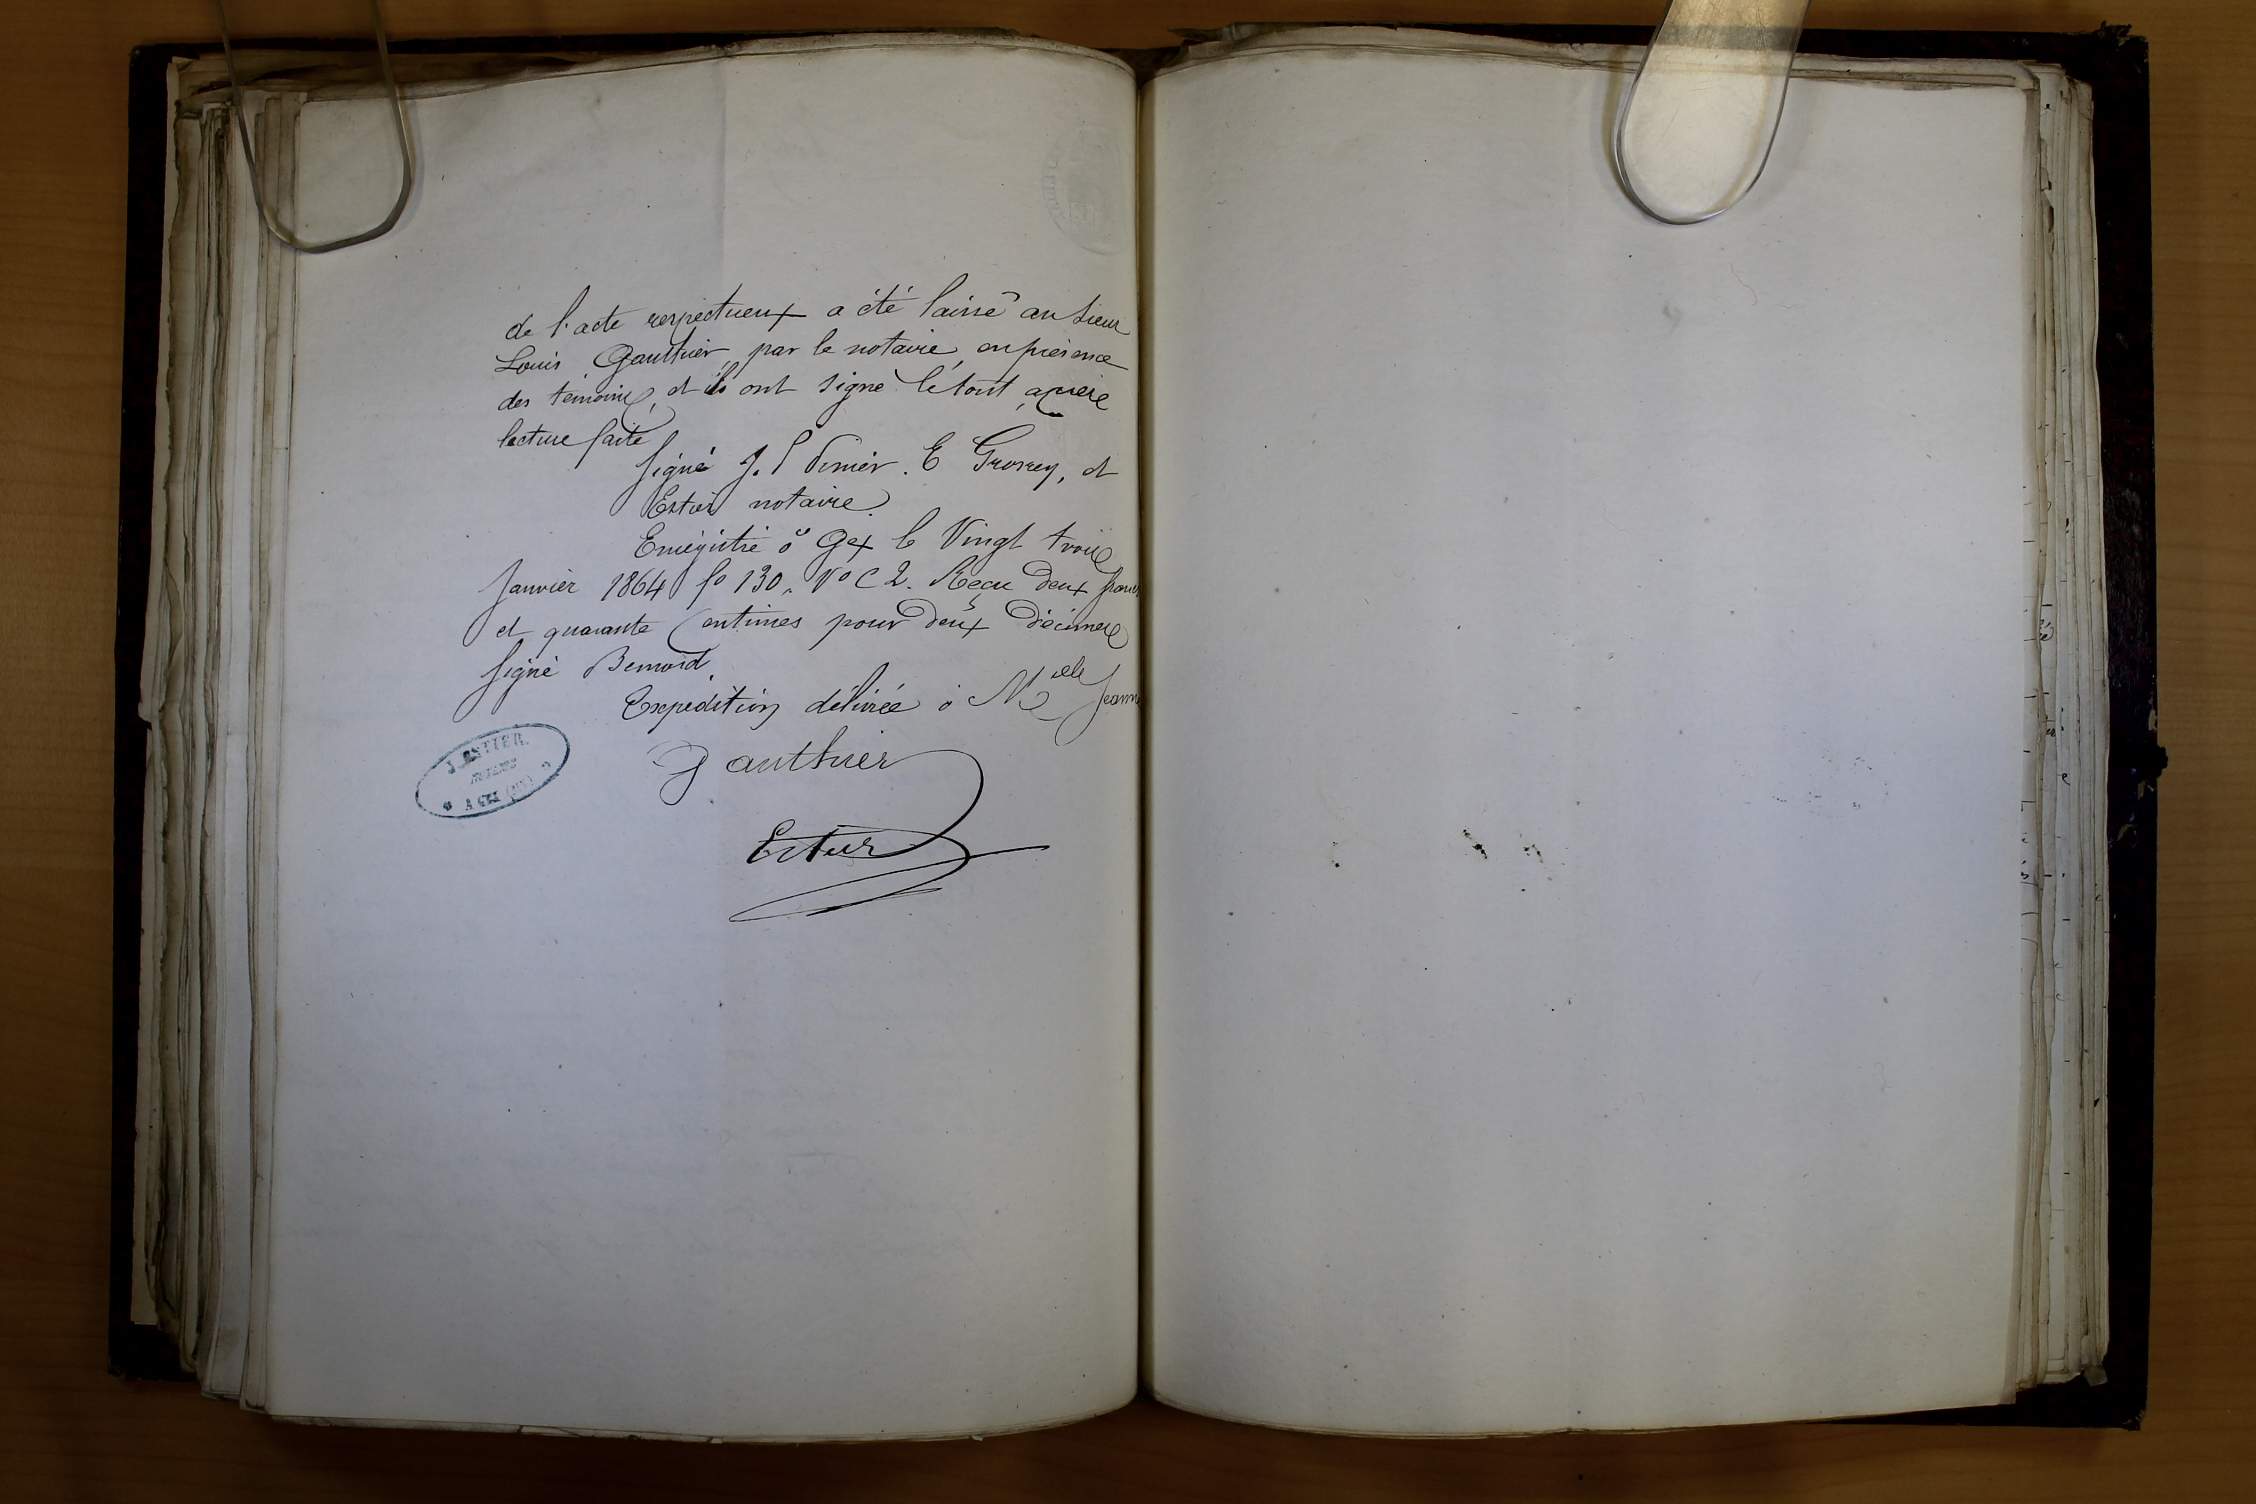 de l'acte respectueux a été laissé au Sieur
Louis Gauthier, par le notaire, en présence
des témoins, et ils ont signé le tout, après
lecture faite
Signé J. P Vinier. E Grosrey, et
Estier notaire.
Enregistré à Gex le Vingt trois
Janvier 1864 fo 130. Vo C 2. Reçu deux francs
et quarante Centimes pour deux Décimes
Signé
Expédition délivrée à Melle Jeanne
Gauthier
Estier
J. ESTIER.
NOTAIRE
A GEX (AIN)